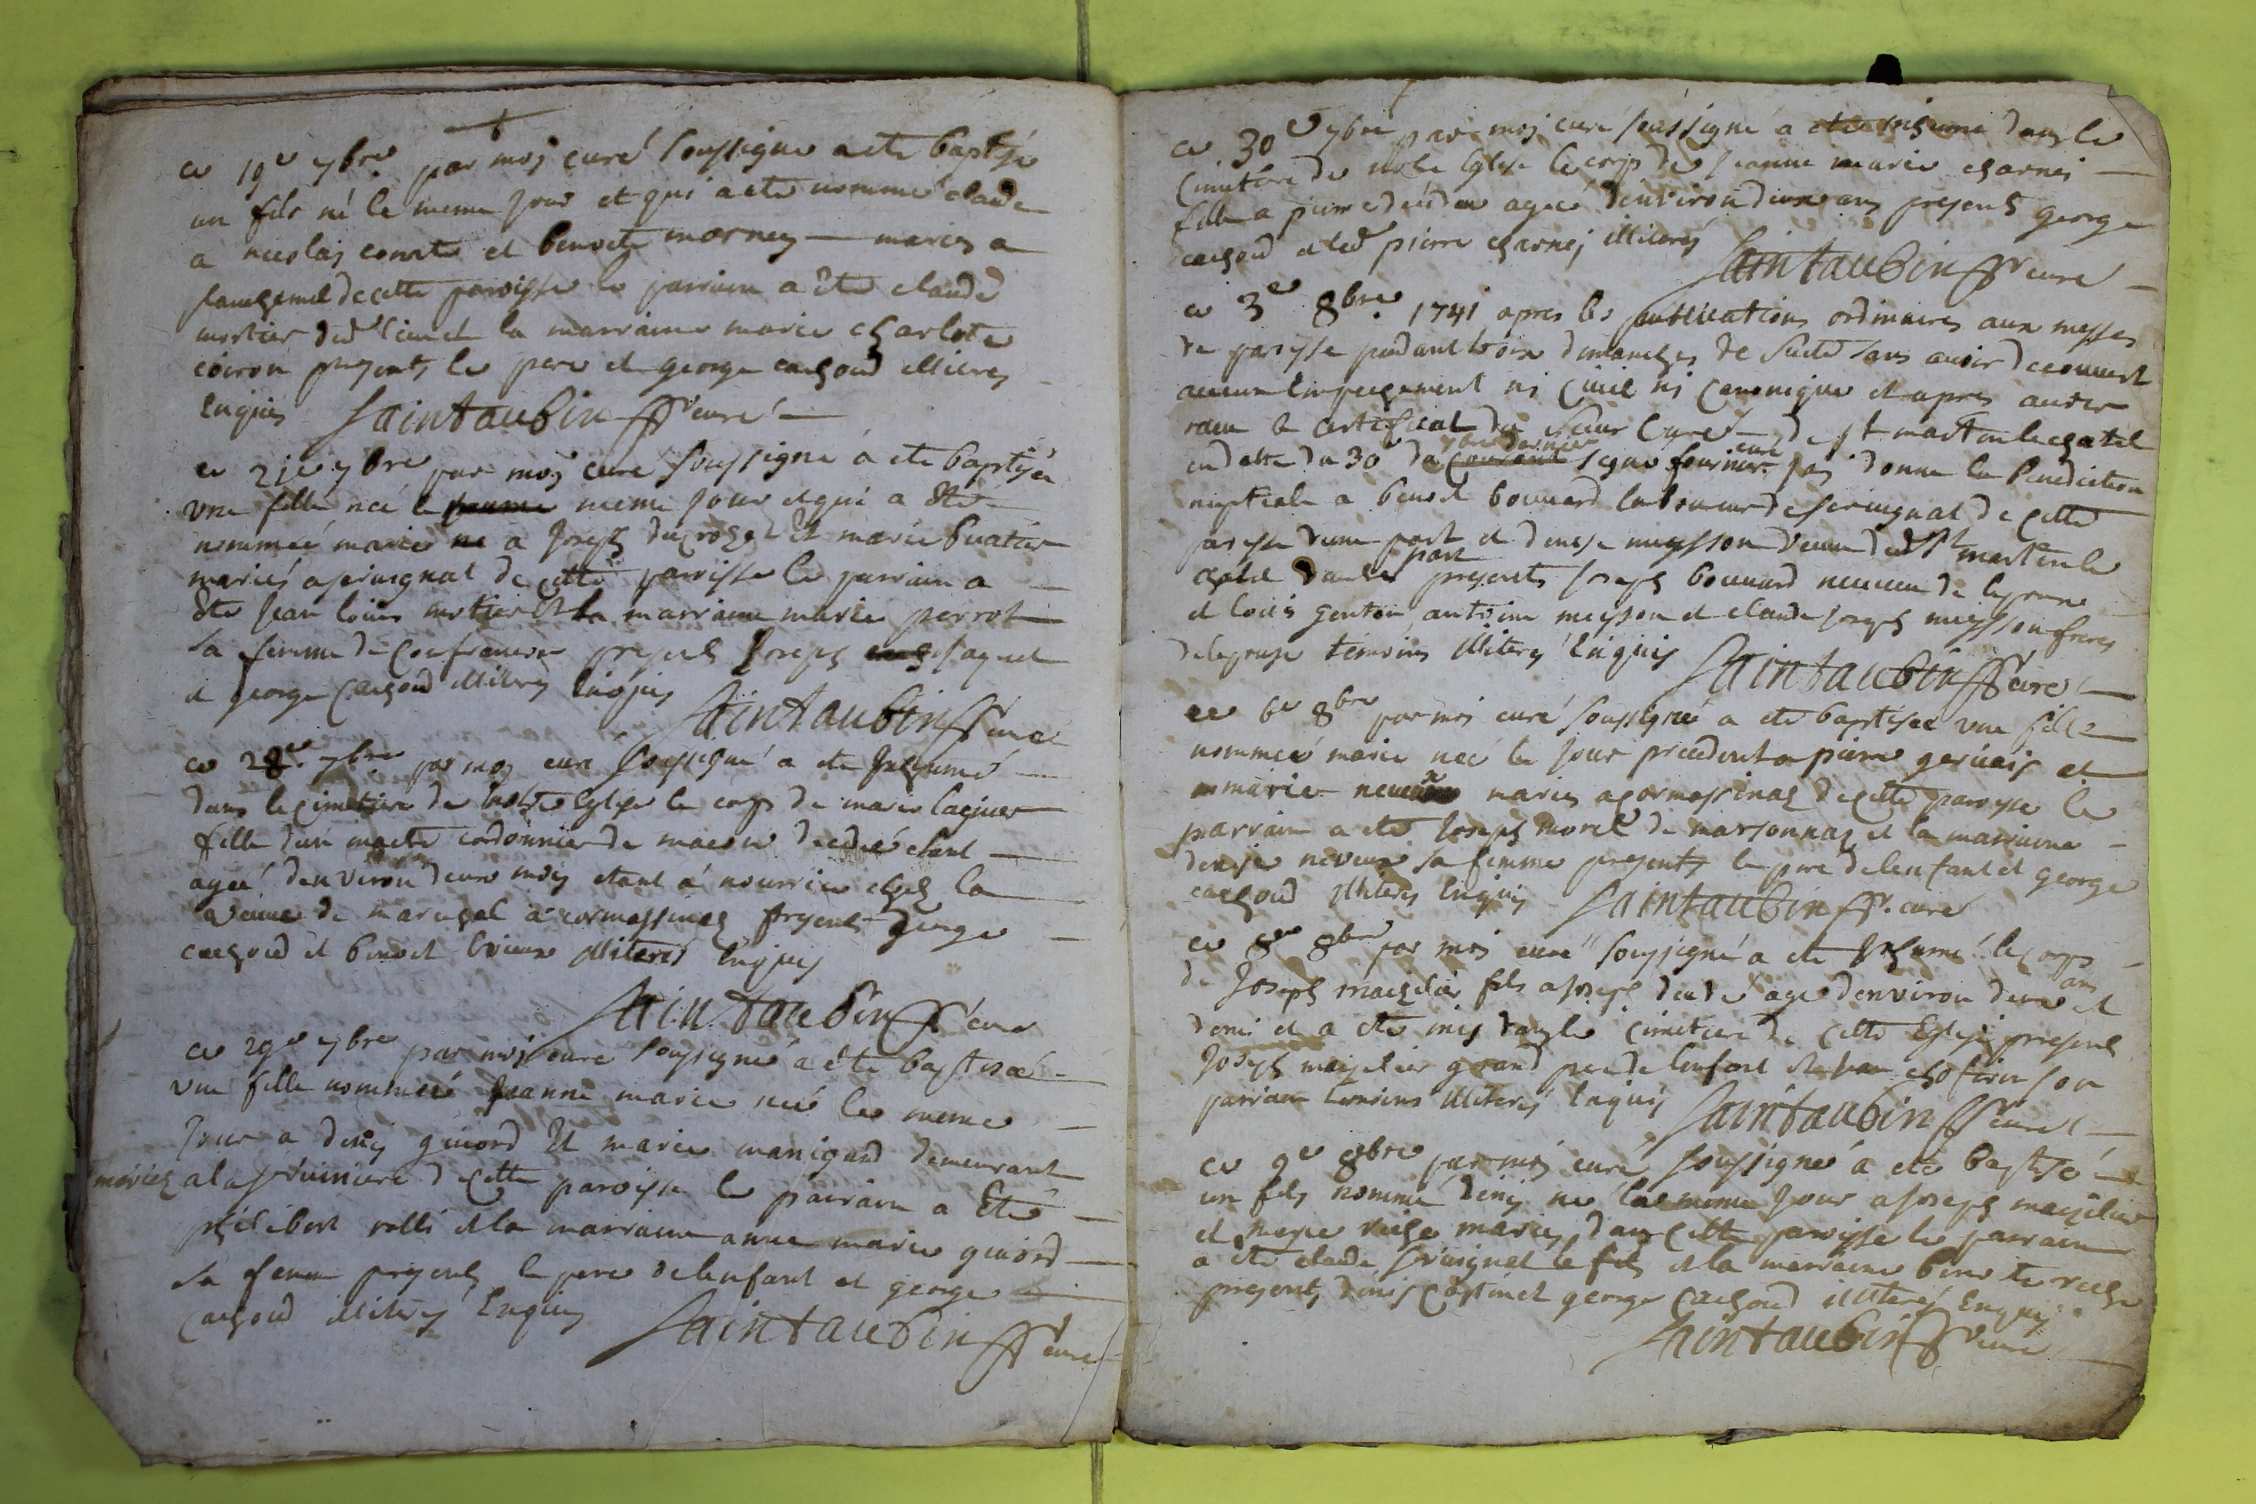 ce 19e 7bre par moy curé soussigné a ete baptisé
un fils né le meme jour et qui a ete nommé claude
a nicolas comte et benoite mornay maries a
de cette paroisse le parrain a ete claude
mortier dud lieu et la marraine marie charlote
coiron presents le pere et george cachoud illiteres
enquis Saintaubin curé
ce 21e 7bre par moy curé soussigné a ete baptisée
une fille née le meme jour et qui a ete
nommée marie a joseph ducrozet et marie buatier
mariés a servignat de cette paroisse le parrain a
ete jean louis mortier et la marraine marie perrot
sa femme de confrancon presents joseph
et george cachoud illiteres enquis
Saintaubin curé
ce 28e 7bre par moy curé soussigné a ete inhumé
dans le cimetiere de notre eglise le corps de marie
fille d'un maitre cordonnier de macon decedée etant
agée d'environ deux mois etant a nourrice chez la
veuve de marechal a cormassinaz presents george
cachoud et benoit illiteres enquis
Saintaubin curé
ce 29e 7bre par moy curé soussigné a ete baptisée
une fille nommée jeanne marie née le meme
jour a denis guiord et marie manigand demeurant
mariez a la de cette paroisse le parrain a ete
philibert rolli et la marraine anne marie guiord
sa femme presents le pere de lenfant et george
cachoud illiteres enquis Saintaubin curé
ce 30e 7bre par moy curé soussigné a ete inhumé dans le
cimetiere de notre eglise le corps de jeanne marie charnei
fille a pierre decedée agée d'environ deux ans presents george
cachoud et led pierre charnei illiteres
Saintaubin curé
ce 3e 8bre 1741 apres les publications ordinaires aux messes
de paroisse pendant trois dimanches de suite sans avoir decouvert
aucun empechement ni civil ni canonique et apres avoir
receu le certificat du sieur curé de st martin le chatel
7bre dernier curé
en datte du 30e du courant signé fournier jai donné la benediction
nuptiale a benoit bouvard laboureur de servignat de cette
paroisse d'une part et denise meysson veuve dud st martin le
part
chatel d'autre presents joseph bouvard neveu de lepoux
et louis genton, antoine meysson et claude joseph meysson freres
de lepouse temoins illiteres enquis Saintaubin curé
ce 6e 8bre par moi curé soussigné a ete baptisée une fille
nommée marie née le jour precedent a pierre gervais et
marie maries a cormassinaz de cette paroisse le
parrain a ete joseph morel de marsonnaz et la marraine
denise neveux sa femme presents le pere de lenfant et george
cachoud illiteres enquis Saintaubin curé
ce 8e 8bre par moi curé soussigné a ete inhumé le corps
ans
de joseph maizilier fils a joseph decedé agé d'environ deux et
demi et a ete mis dans le cimetiere de cette eglise presents
joseph maizilier grand pere de lenfant et jean son
parrain temoins illiteres enquis Saintaubin curé
ce 9e 8bre par moi curé soussigné a ete baptisé
un fils nommé denis né le meme jour a joseph maizilier
et maries dans cette paroisse le parrain
a ete claude le fils et la marraine benoite
presents denis et george cachoud illiteres enquis
Saintaubin curé